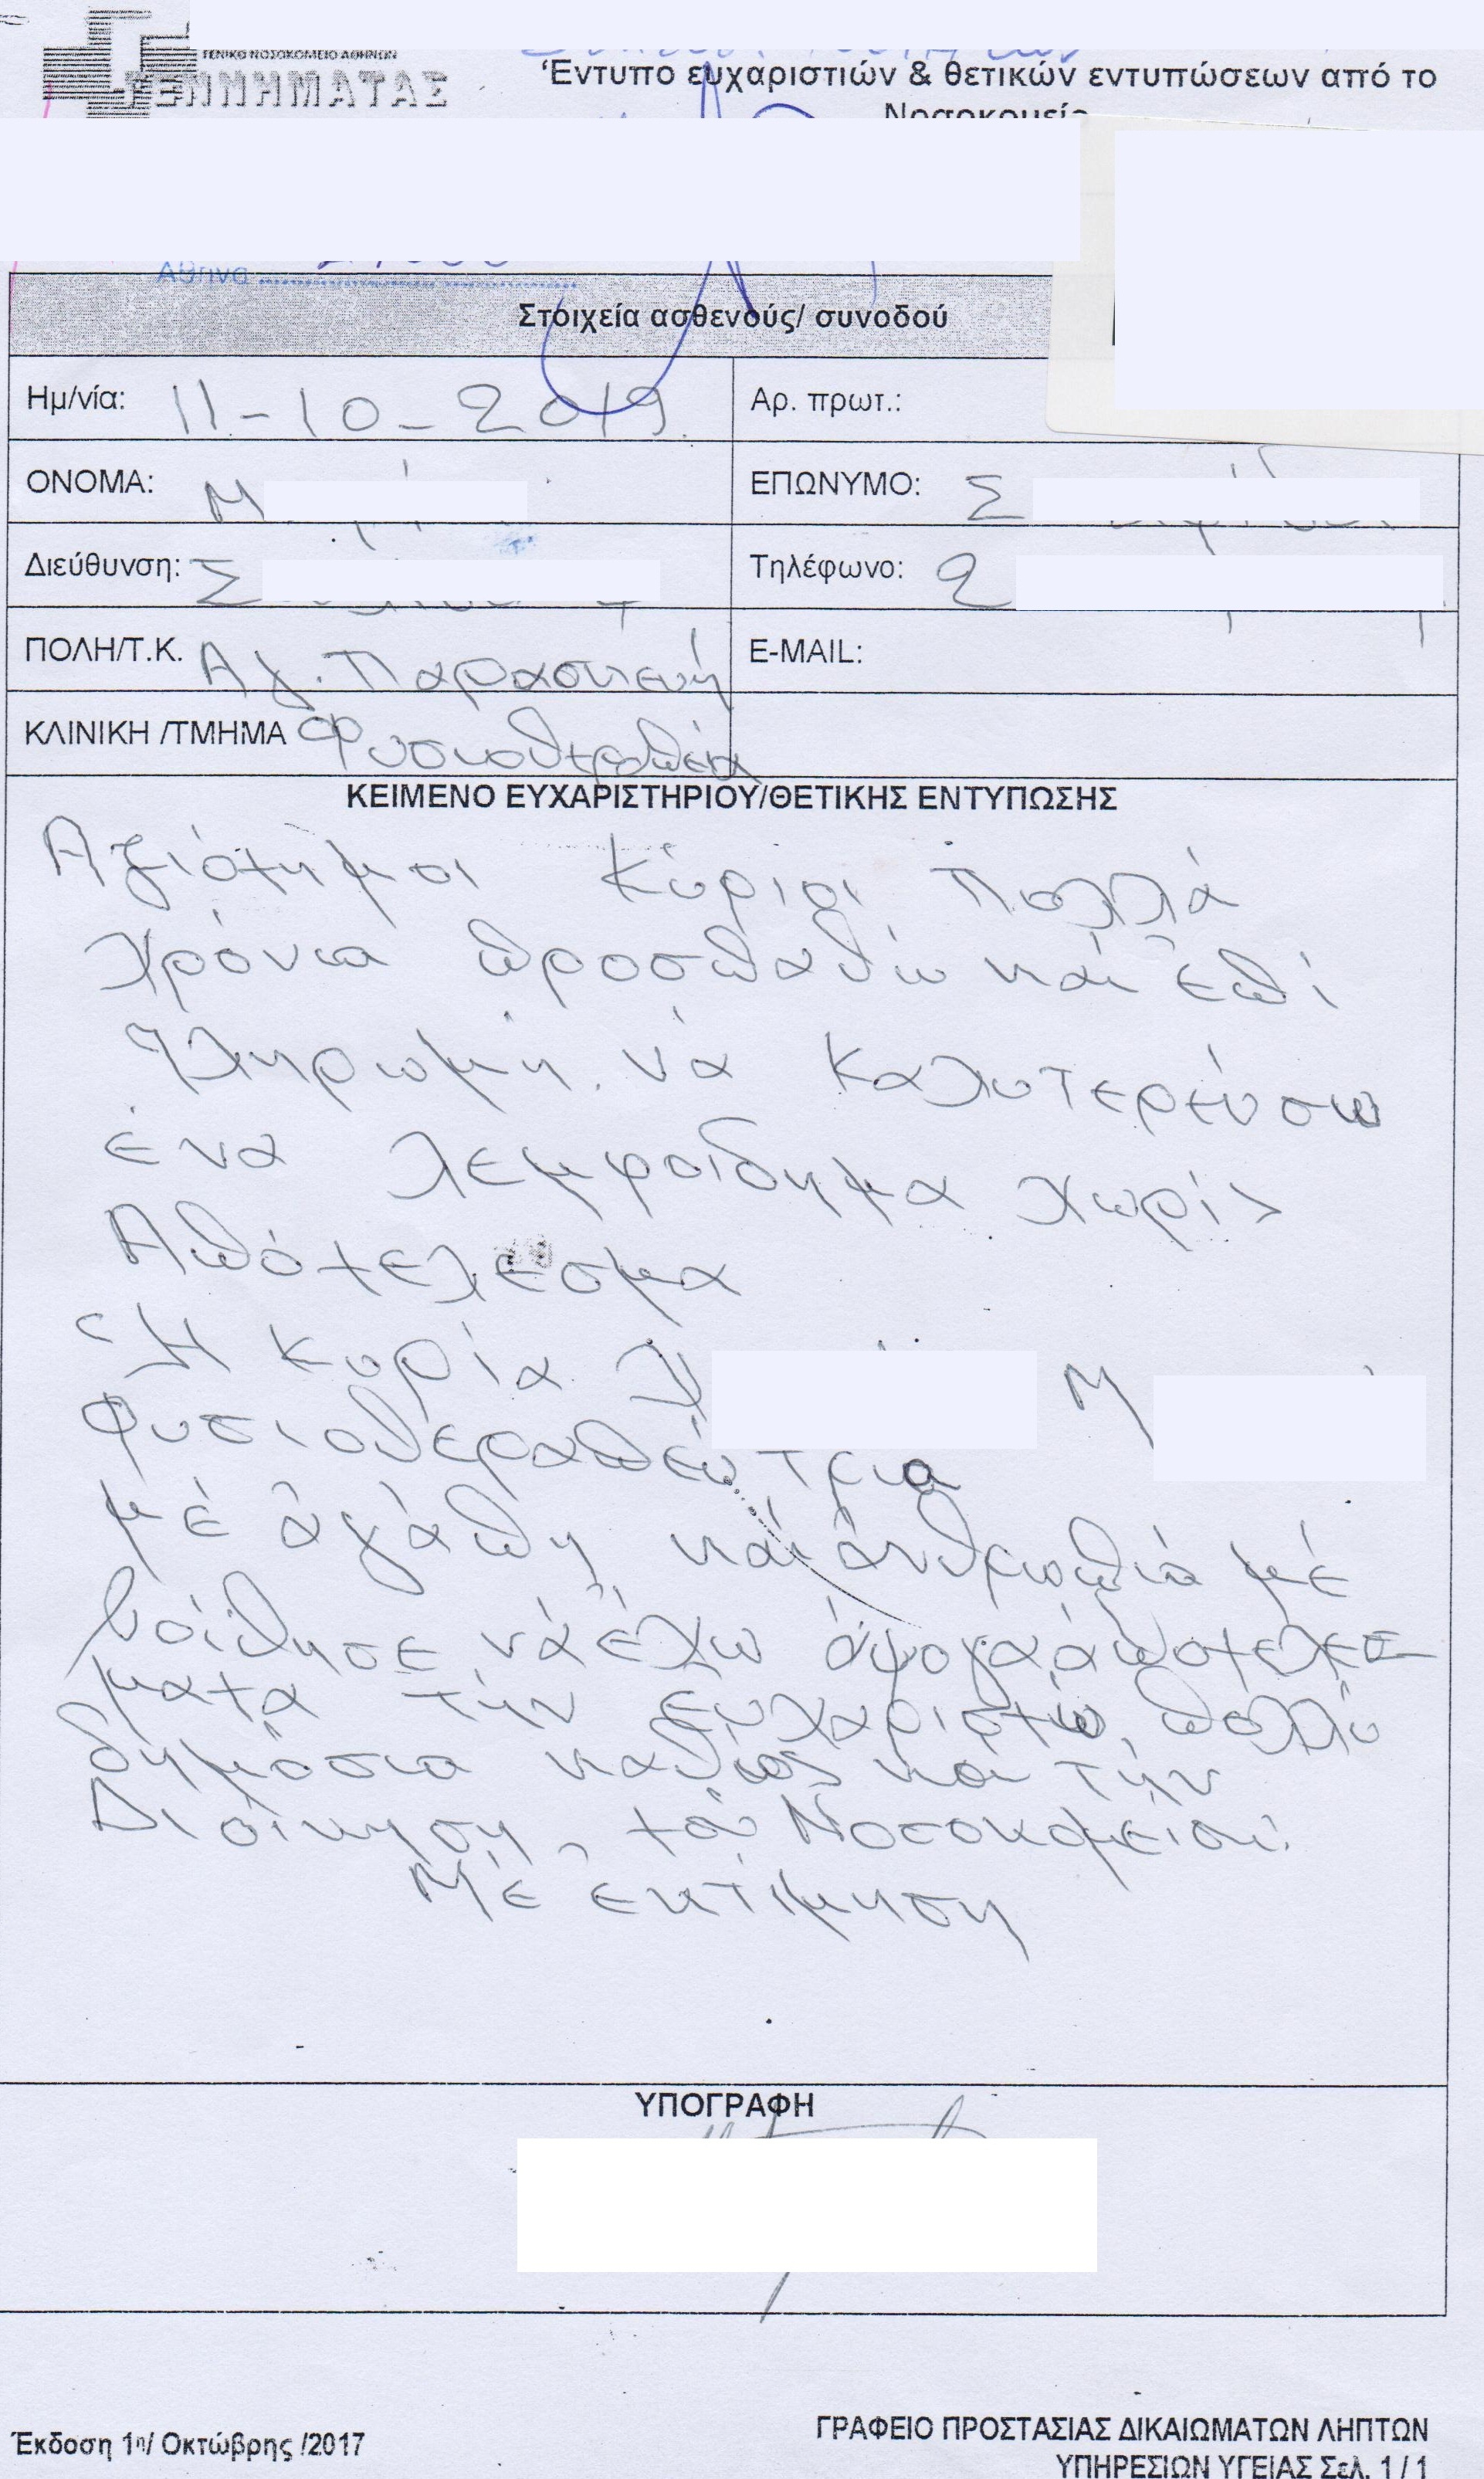 ΓΕΝΙΚΟ ΝΟΣΟΚΟΜΕΙΟ ΑΘΗΝΩΝ
ΓΕΝΝΗΜΑΤΑΣ
Έντυπο ευχαριστιών & θετικών εντυπώσεων από το
Νοσοκομείο
Αθήνα
Στοιχεία ασθενούς/ συνοδού
Ημ/νία: 11-10-2019 Αρ. πρωτ.:
ΟΝΟΜΑ: Μ ΕΠΩΝΥΜΟ: Σ
Διεύθυνση: Σ Τηλέφωνο: 2
ΠΟΛΗ/Τ.Κ. Αγ. Παρασκευή E-MAIL:
ΚΛΙΝΙΚΗ /ΤΜΗΜΑ
ΚΕΙΜΕΝΟ ΕΥΧΑΡΙΣΤΗΡΙΟΥ/ΘΕΤΙΚΗΣ ΕΝΤΥΠΩΣΗΣ
Αξιότημοι Κύριοι Πολλά
χρόνια προσπαθώ καί ἐπί
πληρωμή νά καλυτερεύσω
ένα λεμφοίδημα χωρίς
Αποτέλεσμα
Ἡ κυρία Μ
Φυσιοθεραπεύτρια
μέ ἀγάπη καί ἀνθρωπιά μέ
βοίθησε νά έχω άψογα ἀποτελέσ
ματα τήν ευχαριστώ πολλύ
δημόσια καθώς καί τήν
Διοίκηση τοῦ Νοσοκομείου.
Μέ εκτίμηση
ΥΠΟΓΡΑΦΗ
Έκδοση 1η/ Οκτώβρης /2017
ΓΡΑΦΕΙΟ ΠΡΟΣΤΑΣΙΑΣ ΔΙΚΑΙΩΜΑΤΩΝ ΛΗΠΤΩΝ
ΥΠΗΡΕΣΙΩΝ ΥΓΕΙΑΣ Σελ. 1 / 1